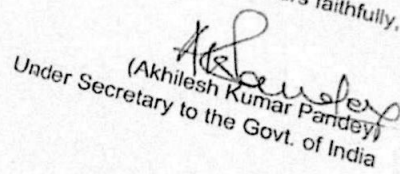 faithfully,
(Akhilesh Kumar Pandey)
Under Secretary to the Govt. of India